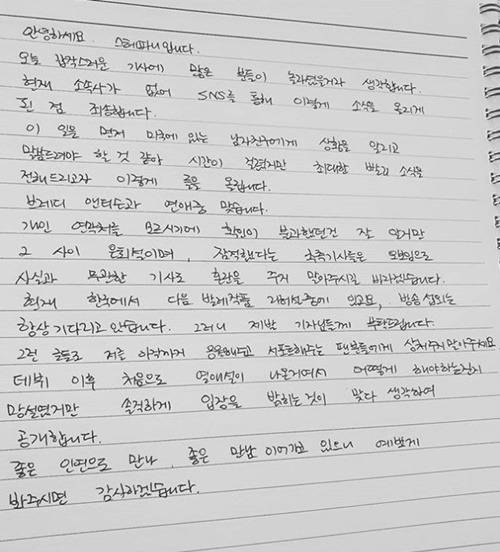 안녕하세요. 스테파니입니다.
오늘 갑작스러운 기사에 많은 분들이 놀라셨을거라 생각합니다.
현재 소속사가 없어 SNS를 통해 이렇게 소식을 올리게
된 점 죄송합니다.
이 일을 먼저 미국에 있는 남자친구에게 상황을 알리고
말씀드려야 할 것 같아 시간이 걸렸지만 최대한 빨리 소식을
전해드리고자 이렇게 글을 올립니다.
브래디 앤더슨과 연애중 맞습니다.
개인 연락처를 모르시기에 확인이 불가했던건 잘 알지만
그 사이 은퇴설이며, 잠적했다는 추측기사들은
사실과 무관한 기사로 혼란을 주지 말아주시길 바라겠습니다.
현재 한국에서 다음 발레작품 리허설중에 있고요, 방송 섭외는
항상 기다리고 있습니다. 그러니 제발 기자님들께 부탁드립니다.
그런 글들로 저를 아직까지 응원해주고 서포트해주는 팬분들에게 상처주지 말아주세요
데뷔 이후 처음으로 열애설이 나온거여서 어떻게 해야하는건지
망설였지만 솔직하게 입장을 밝히는것이 맞다 생각하여
공개합니다.
좋은 인연으로 만나, 좋은 만남 이어가고 있으니 예쁘게
봐주시면 감사하겠습니다.